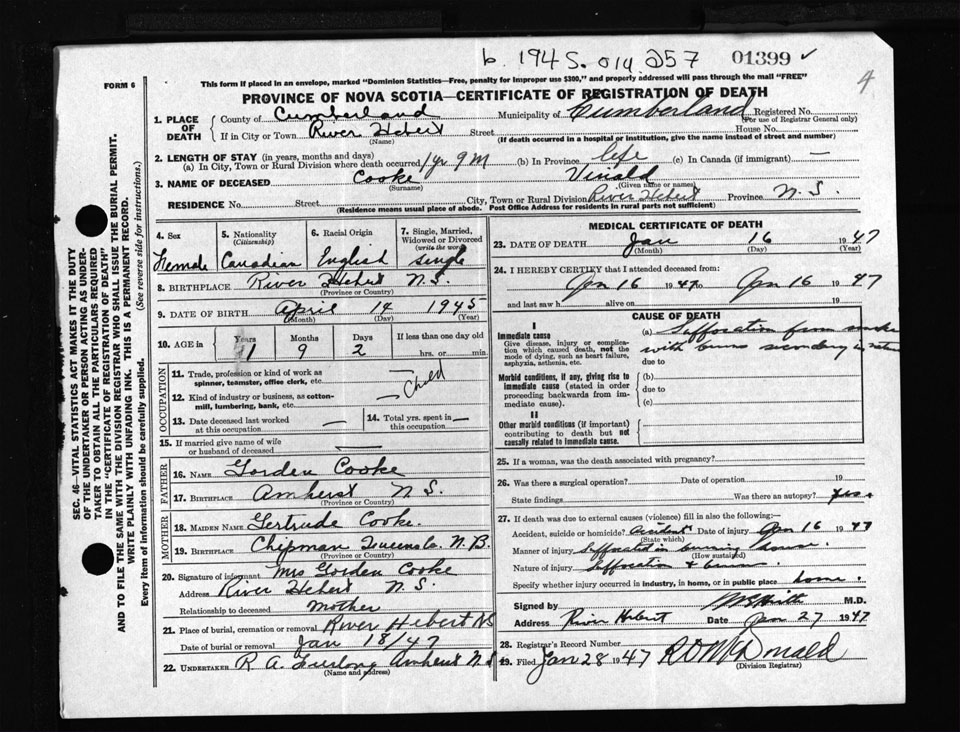 b. 1945. 014257 01399 ✓
4
FORM 6
This form if placed in an envelope, marked "Dominion Statistics—Free, penalty for improper use $300," and properly addressed will pass through the mail "FREE"
PROVINCE OF NOVA SCOTIA—CERTIFICATE OF REGISTRATION OF DEATH
1. PLACE OF DEATH
County of Cumberland Municipality of Cumberland Registered No.
(For use of Registrar General only)
If in City or Town River Hebert Street House No.
(Name) (If death occurred in a hospital or institution, give the name instead of street and number)
2. LENGTH OF STAY (in years, months and days)
(a) In City, Town or Rural Division where death occurred 1 yr 9 M (b) In Province life (c) In Canada (if immigrant) —
3. NAME OF DECEASED Cooke
(Surname) (Given name or names)
RESIDENCE No. Street City, Town or Rural Division River Hebert Province N.S.
(Residence means usual place of abode. Post Office Address for residents in rural parts not sufficient)
4. Sex Female
5. Nationality (Citizenship) Canadian
6. Racial Origin English
7. Single, Married, Widowed or Divorced (write the word) single
8. BIRTHPLACE River Hebert N.S.
(Province or Country)
9. DATE OF BIRTH April 14 1945
(Month) (Day) (Year)
10. AGE in Years Months Days If less than one day old
1 9 2 hrs. or min.
OCCUPATION
11. Trade, profession or kind of work as spinner, teamster, office clerk, etc.
Child
12. Kind of industry or business, as cotton-mill, lumbering, bank, etc.
13. Date deceased last worked at this occupation —
14. Total yrs. spent in this occupation —
15. If married give name of wife or husband of deceased —
FATHER
16. NAME Gorden Cooke
17. BIRTHPLACE Amherst N.S.
(Province or Country)
MOTHER
18. MAIDEN NAME Gertrude Cooke.
19. BIRTHPLACE Chipman Queens Co. N.B.
(Province or Country)
20. Signature of informant Mrs Gorden Cooke
Address River Hebert N.S.
Relationship to deceased Mother
21. Place of burial, cremation or removal River Hebert NS
Date of burial or removal Jan 18/47
22. UNDERTAKER R. A. Furlong Amherst N.S
(Name and address)
MEDICAL CERTIFICATE OF DEATH
23. DATE OF DEATH Jan 16 1947
(Month) (Day) (Year)
24. I HEREBY CERTIFY that I attended deceased from:
Jan 16 1947 to Jan 16 1947
and last saw h alive on 19
CAUSE OF DEATH
I
Immediate cause
Give disease, injury or complication which caused death, not the mode of dying, such as heart failure, asphyxia, asthenia, etc.
(a) Suffocation from smoke
with burns secondary in
due to
Morbid conditions, if any, giving rise to immediate cause (stated in order proceeding backwards from immediate cause).
(b)
due to
(c)
II
Other morbid conditions (if important) contributing to death but not causally related to immediate cause.
25. If a woman, was the death associated with pregnancy?
26. Was there a surgical operation? Date of operation 19
State findings Was there an autopsy? Yes
27. If death was due to external causes (violence) fill in also the following:—
Accident, suicide or homicide? accident Date of injury Jan 16 1947
(State which)
Manner of injury Suffocated in burning house.
(How sustained)
Nature of injury Suffocation & burns.
Specify whether injury occurred in industry, in home, or in public place home.
Signed by M.D.
Address River Hebert Date Jan 27 1947
28. Registrar's Record Number
29. Filed Jan 28 1947 R D McDonald
(Division Registrar)
SEC. 46—VITAL STATISTICS ACT MAKES IT THE DUTY
OF THE UNDERTAKER OR PERSON ACTING AS UNDER-
TAKER TO OBTAIN ALL THE PARTICULARS REQUIRED
IN THE "CERTIFICATE OF REGISTRATION OF DEATH"
AND TO FILE THE SAME WITH THE DIVISION REGISTRAR WHO SHALL ISSUE THE BURIAL PERMIT.
WRITE PLAINLY WITH UNFADING INK. THIS IS A PERMANENT RECORD.
Every item of information should be carefully supplied. (See reverse side for instructions.)